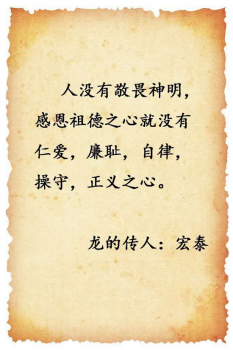 人没有敬畏神明，
感恩祖德之心就没有
仁爱，廉耻，自律，
操守，正义之心。
龙的传人：宏泰